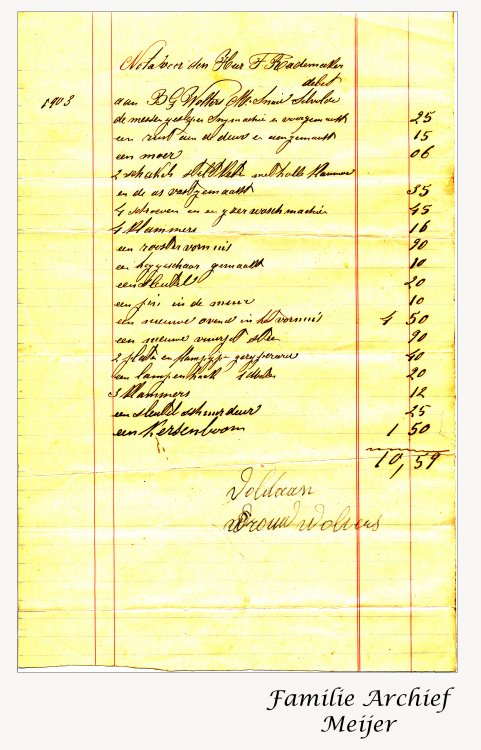 Nota voor den Heer F Rademaker
debet
1903 aan B G Wolters Mr Smid
de messen geslepen Snymachien en voorgemaakt 25
een rust aan de deur en aangemaakt 15
een moer 06
2 schakels met holle klammer
en de as vastgemaakt 35
4 schroeven en en yzer waschmachien 45
4 klammers 16
een rooster vornuis 90
een heggeschaar gemaakt 10
een sleutel 20
een pin in de muur 10
een nieuwe oven in het vornuis 4 50
een nieuwe 90
2 platen en gerepareerd 40
een lampenhaak 20
3 klammers 12
een sleutel schuurdeur 25
een Kersenboom 1 50
10,59
Voldaan
Vrouw Wolters
Familie Archief
Meijer